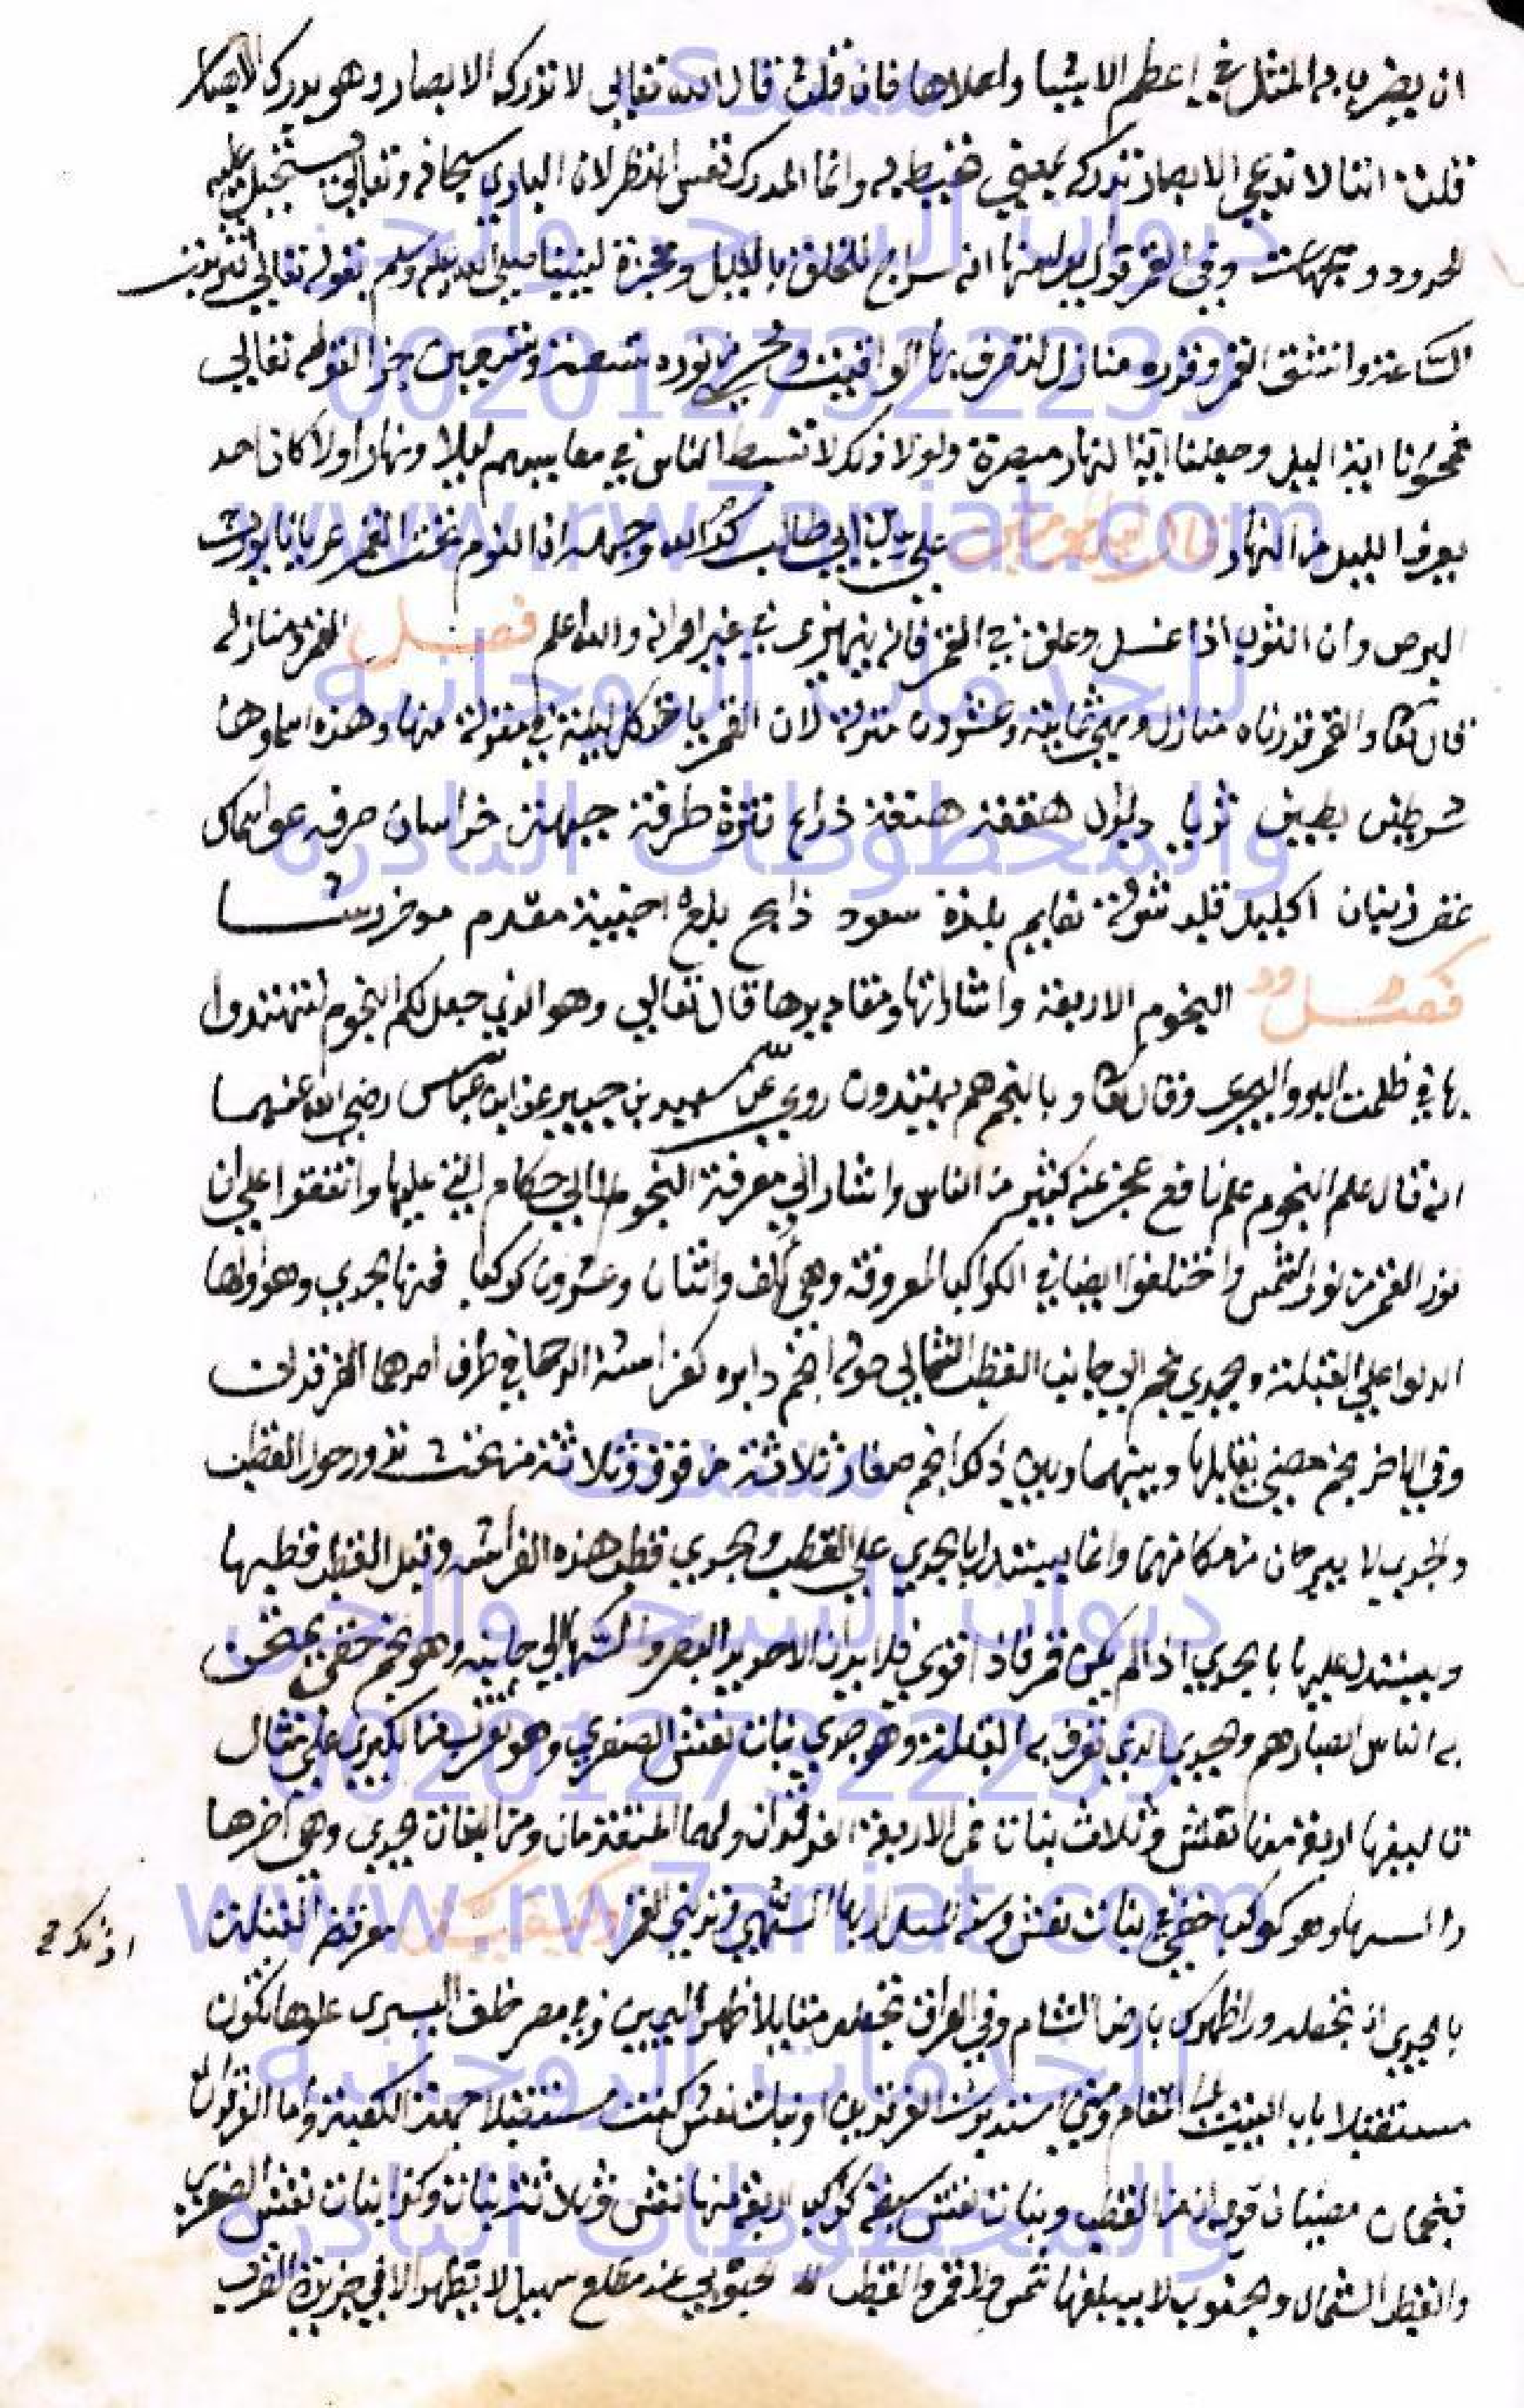 ان يضرب المثل في اعظم الاشيا واعلاها فان قلت قال الله تعالى لا تدركه الابصار وهو يدرك الابصار
قلت اننا لا ندعي الابصار تدركه بمعنى وانما المدرك نفس النظر لان الباري سبحانه وتعالى يستحيل عليه
الحدود والجهات وفي القمر انه سراج للخلق بالليل ومعجزة لنبينا صلى الله عليه وسلم بقوله تعالى اقتربت
الساعة وانشق القمر وقدره منازل لتعرف بها المواقيت من نوره تسعة وتسعين جزا لقوله تعالى
فمحونا اية الليل وجعلنا اية النهار مبصرة ولولا ذلك لا تنبسط الناس في معايشهم ليلا ونهارا ولا كان احد
يعرف الليل من النهار قال امير المومنين علي بن ابي طالب كرم الله وجهه ان النوم تحت القمر عريانا يورث
البرص وان الثوب اذا غسل وعلق في القمر فانه يتهرى في غير اوانه والله اعلم فصل القمر ومنازله
قال تعالى والقمر قدرناه منازل وهي ثمانية وعشرون منزلة لان القمر ياخذ كل ليلة في منزلة منها وهذه اسماوها
شرطين بطين ثريا دبران هقعة هنعة ذراع نثرة طرفة جبهة خراسان صرفه عوا سماك
غفر زبنان اكليل قلب شولة نعايم بلدة سعود ذابح بلع اخبية مقدم موخر رشا
فصل النجوم الاربعة واشاراتها ومقاديرها قال تعالى وهو الذي جعل لكم النجوم لتهتدوا
بها في ظلمت البر والبحر وقال تعالى وبالنجم هم يهتدون روي عن سعيد بن جبير عن ابن عباس رضي الله عنهما
انه قال علم النجوم علم نافع عجز عنه كثير من الناس واشار الى معرفة النجوم لا الى احكام التي عليها واتفقوا على ان
نور القمر من نور الشمس واختلفوا ايضا في الكواكب المعروفة وهي الف واثنان وعشرون كوكبا فمنها الجدي وهو اولها
الدلوا على القبلة والجدي نجم الى جانب القطب الشمالي حوله انجم دايره كفراسة الرحا في طرف احدهما الفرقدان
وفي الاخر نجم مضي يقابلها وبينهما وبين ذلك انجم صغار ثلاثة من فوق وثلاثة من تحت تدور حول القطب
والجدي لا يبرحان من مكانهما وانما يستدل بالجدي على القطب والجدي قطب هذه الفراشه وقيل القطب قطبها
ويستدل عليها بالجدي اذا لم يكن قمر فاذا قوي فلا يراه الا حديد البصر والسها الى جانبه وهو نجم خفي يمتحن
به الناس ابصارهم والجدي الذي تعرف به القبلة وهو جدي بنات نعش الصغرى وهو يقرب من الكبرى على مثال
تاليفها اربعة منها نعش وثلاث بنات فمن الاربعة الفرقدان وهما المتقدمان ومن البنات الجدي وهو اخرها
والسها وهو كوكب خفي في بنات نعش وفي المثل اريها السهى وتريني القمر معرفة القبلة
بالجدي ان تجعله ورا ظهرك بارض الشام وفي العراق تجعله مقابلا ظهر اليمين وفي مصر خلف اليسرى علوها تكون
مستقبلا باب البيت الى المقام ومتى استدبرت الفرقدين او بنات نعش كنت مستقبلا جهة الكعبة واما الفرقدان
فنجمان مضيان قريبان من القطب وبنات نعش سبعة كواكب اربعة منها نعش وثلاثة بنات وكذا بنات نعش الصغرى
والقطب الشمال والجنوب لا يبلغها شمس ولا قمر والقطب الجنوبي عند مطلع سهيل لا يظهر الا في جزيرة العرب